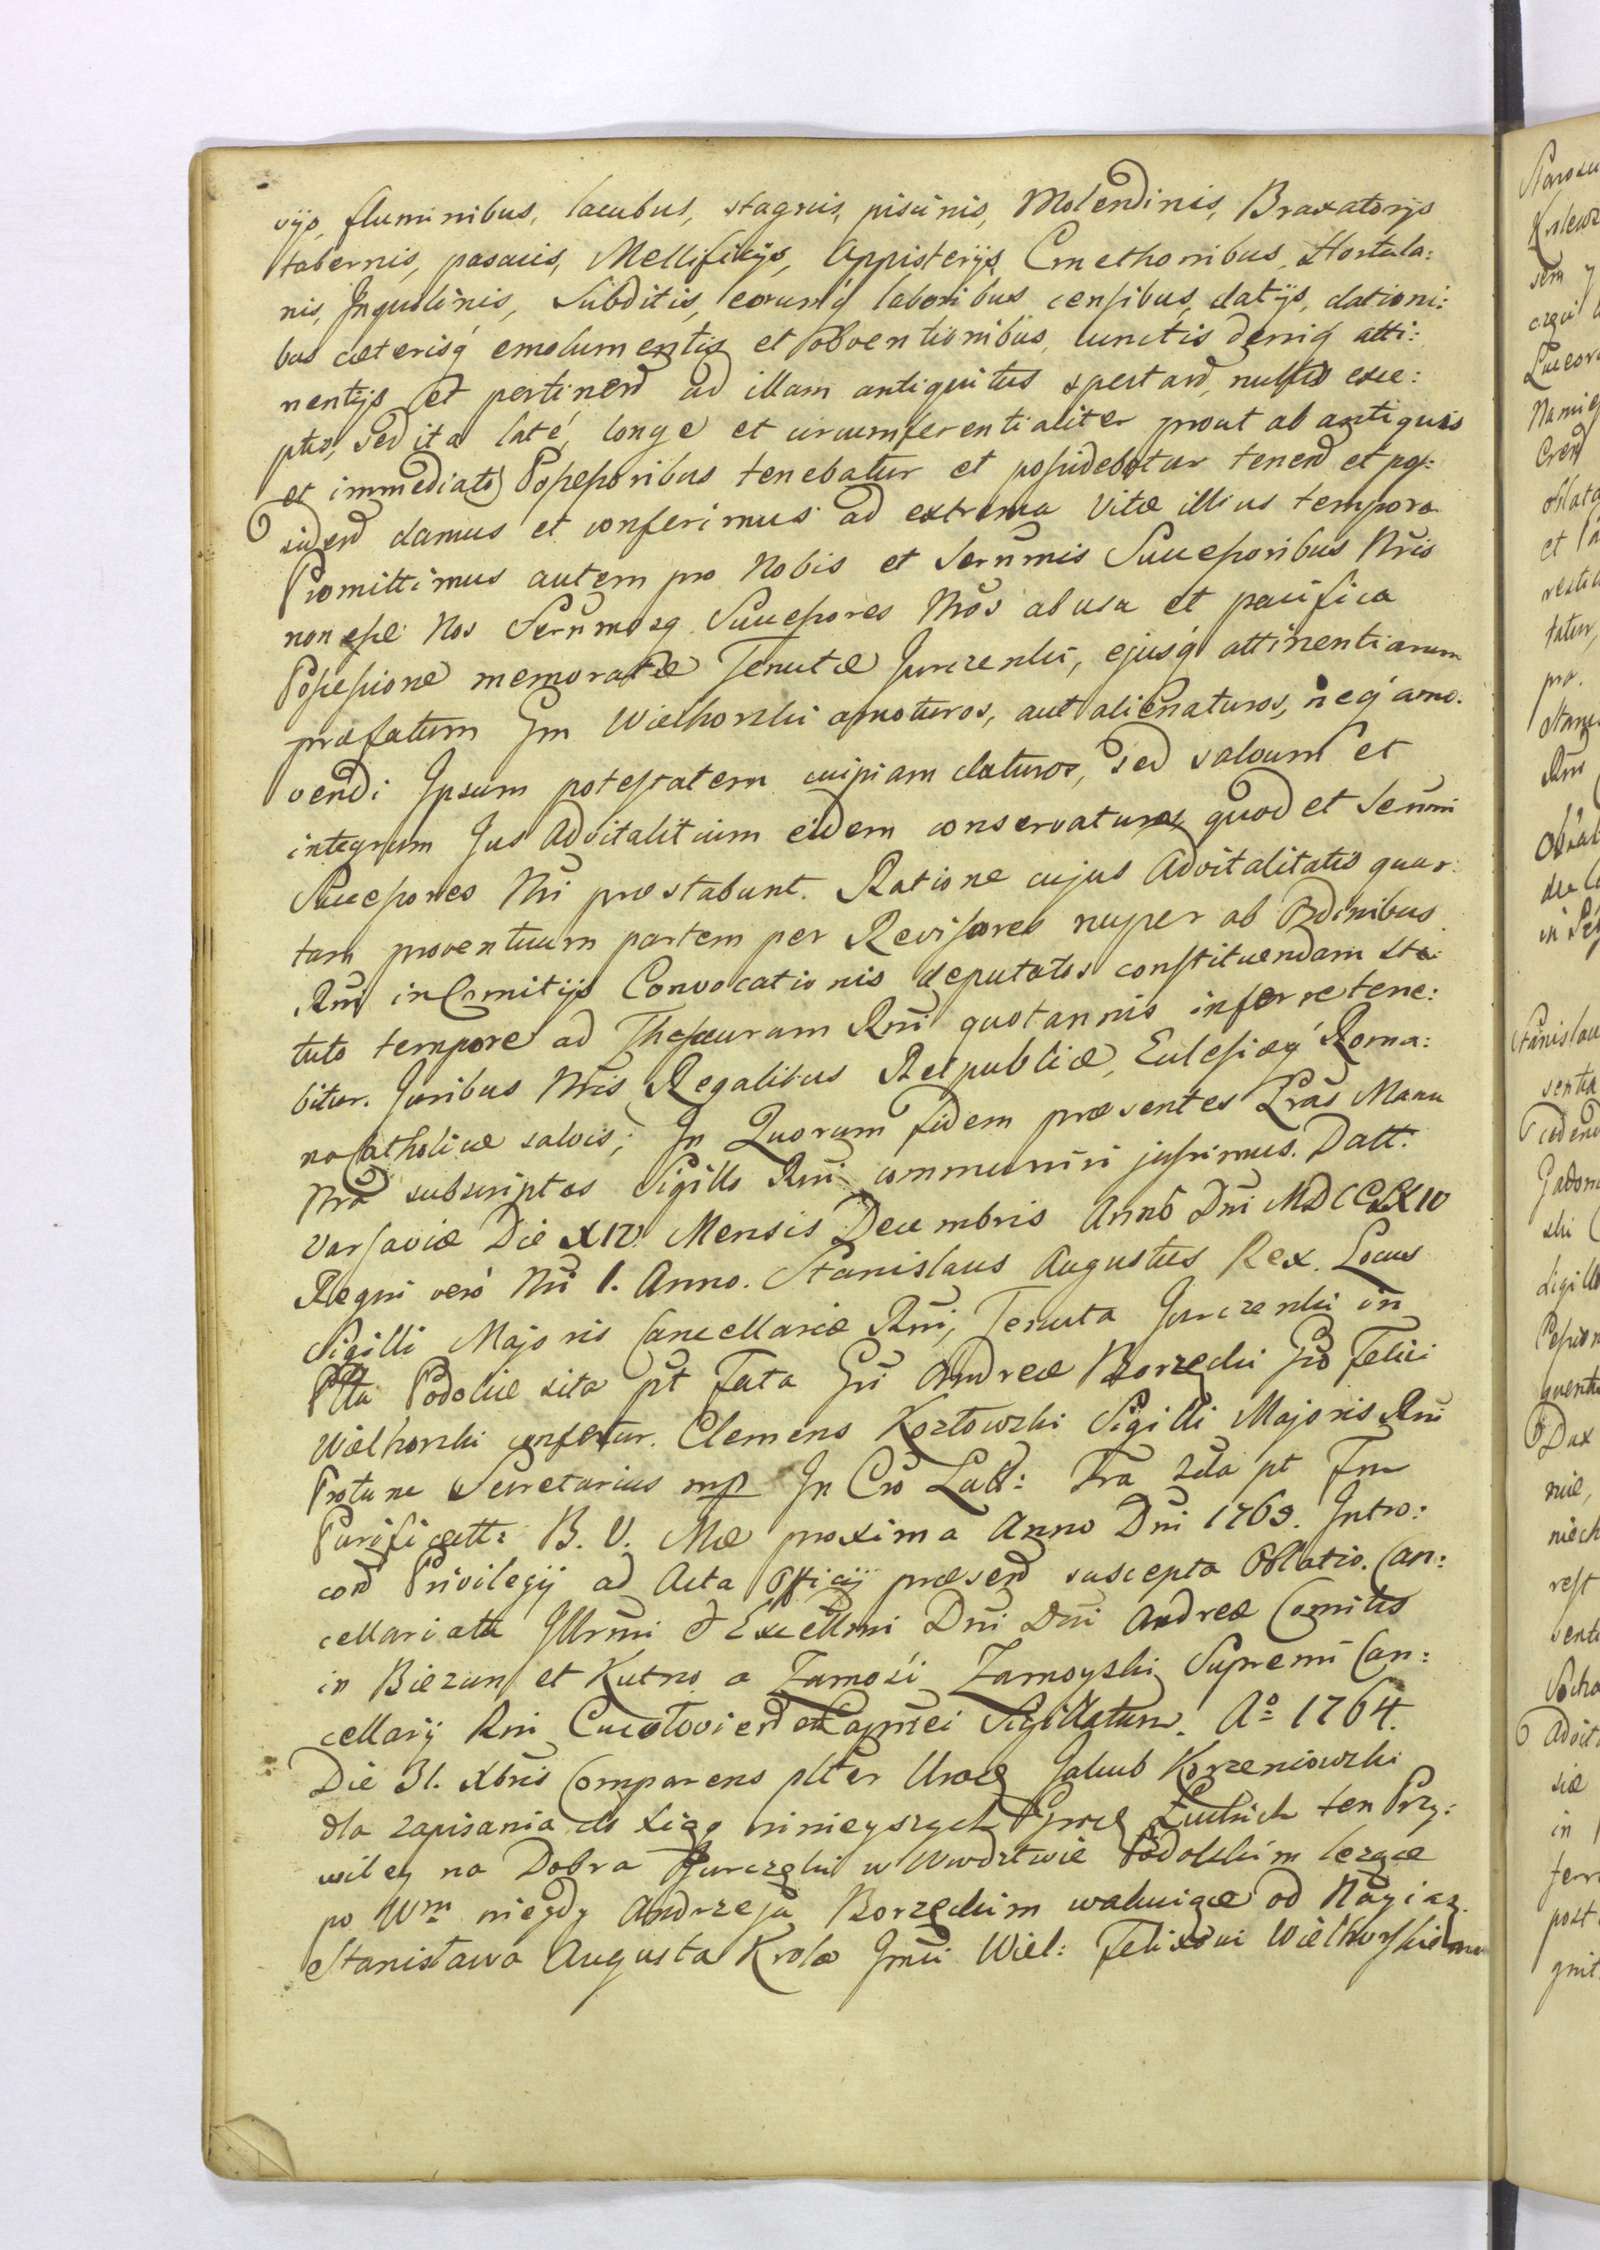 vijs, fluminibus, lacubus, stagnis, piscinis, Molendinis, Braxatorijs
tabernis, pascuis, Mellificijs, Appisterijs, Cmethonibus, Hortula:
nis, Inquilinis, Subditis, eorumq́ laboribus censibus, datijs, dationi:
bus cæterisq́ emolumentis et obventionibus, cunctis deniq́ atti:
nentijs et pertinend ad illam antiquitus spectand, nullis exce:
ptis, sed ita laté, longe et circumferentialiter prout ab antiquis
et immediatis Possessoribus tenebatur et possidebatur tenend et pos:
sidend damus et conferimus ad extrema vitæ illius tempora
Promittimus autem pro Nobis et Serenmis Successoribus Nris
non esse Nos Serenmosq Successores Nros ab usu et pacifica
Possessione memoratæ Tenutæ Jurczenki, ejusq́ attinentiarum
præfatum Gm Wielhorski amoturos, aut alienaturos, neq́ amo:
vendi Ipsum potestatem cuipiam daturos, sed salvum et
integrum Jus Advitalitium eidem conservaturos quod et Senmi
Successores Nri præstabunt. Ratione cujus Advitalitatis quar:
tam proventuum partem per Revisores nuper ab Ordinibus
Rni in Comitijs Convocationis deputatos constituendam sta:
tuto tempore ad Thesaurum Rni quotannis inferre tene:
bitur. Juribus Nris Regalibus Reipublicæ, Eclesiæq́ Roma:
no Catholicæ salvis; In Quorum fidem præsentes Lras Manu
Nra subscriptas Sigillo Rni communiri jussimus. Datt.
Varsaviæ Die XIV Mensis Decembris Anno Dni MDCCLXIV
Regni veró Nri 1. Anno. Stanislaus Augustus Rex. Locus
Sigilli Majoris Cancellariæ Rni, Tenuta Jurczenki in
Pltu Podoliæ sita pt Fata Gri Andreæ Borzęcki Gso Felici
Wielhorski confertur. Clemens Kozłowski Sigilli Majoris Rni
Protunc Secretarius mp In Cro Lucl: Fra 2da pt Fm
Purificatt: B. V. Mæ proxima Anno Dni 1769. Intro:
cond Privilegij ad Acta Officij præsend suscepta Oblatio. Can:
cellariatu Illrmi & Excellmi Dni Dni Andreæ Comitis
in Biezun et Kutno a Zamość Zamoyski Supremi Can:
cellarij Rni Sigillatum. Ao 1764.
Die 31. Xbris Comparens plter Urodz Jakub Korzeniowski
dla zapisania do Xiąg ninieyszych Grodz Łuckich ten Przy:
wiley na Dobra Jurczęki w Wwdztwie Podolskim lezące
po Wm niegdy Andrzeja Borzęckim wakuiące od Nayiasz.
Stanisława Augusta Krola Jmci Wiel: Felixowi Wielhorskiemu